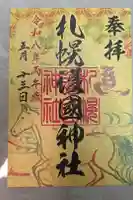 奉拝
札幌護國神社
令和八年丙午歳
五月十三日